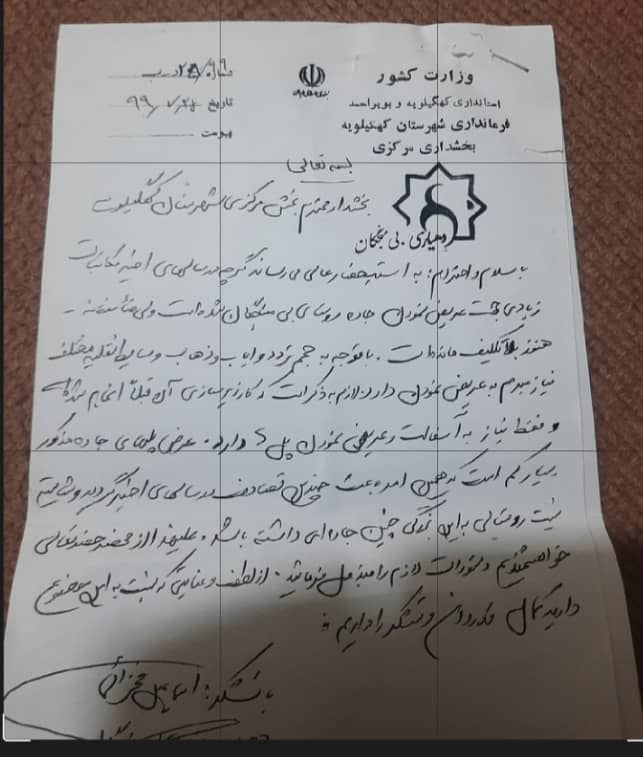 وزارت کشور
استانداری کهگیلویه و بویراحمد
فرمانداری شهرستان کهگیلویه
بخشداری مرکزی
دهیاری بی
شماره
تاریخ ۹۹/۷/
پیوست
بسمه تعالی
بخشدار محترم بخش مرکزی شهرستان کهگیلویه
با سلام و احترام؛ به استحضار عالی می رساند گرچه در سالهای اخیر مکاتبات
زیادی جهت عریض نمودن جاده روستای بی شده است ولی متأسفانه
هنوز بلاتکلیف مانده است. با توجه به حجم تردد و ایاب و ذهاب وسایط نقلیه مختلف
نیاز مبرم به عریض نمودن دارد. لازم به ذکر است که کار زیرسازی آن قبلاً انجام شده
و فقط نیاز به آسفالت و عریض نمودن پل دارد. عرض پلهای جاده مذکور
بسیار کم است که همین امر باعث چندین تصادف در سالهای اخیر گردیده و شایسته
نیست روستایی به این بزرگی چنین جاده ای داشته باشد. علیهذا از محضر حضرتعالی
خواهشمندیم دستورات لازم را مبذول فرمائید. از لطف و عنایتی که نسبت به این موضوع
دارید کمال قدردانی و تشکر را داریم
با تشکر: اسماعیل